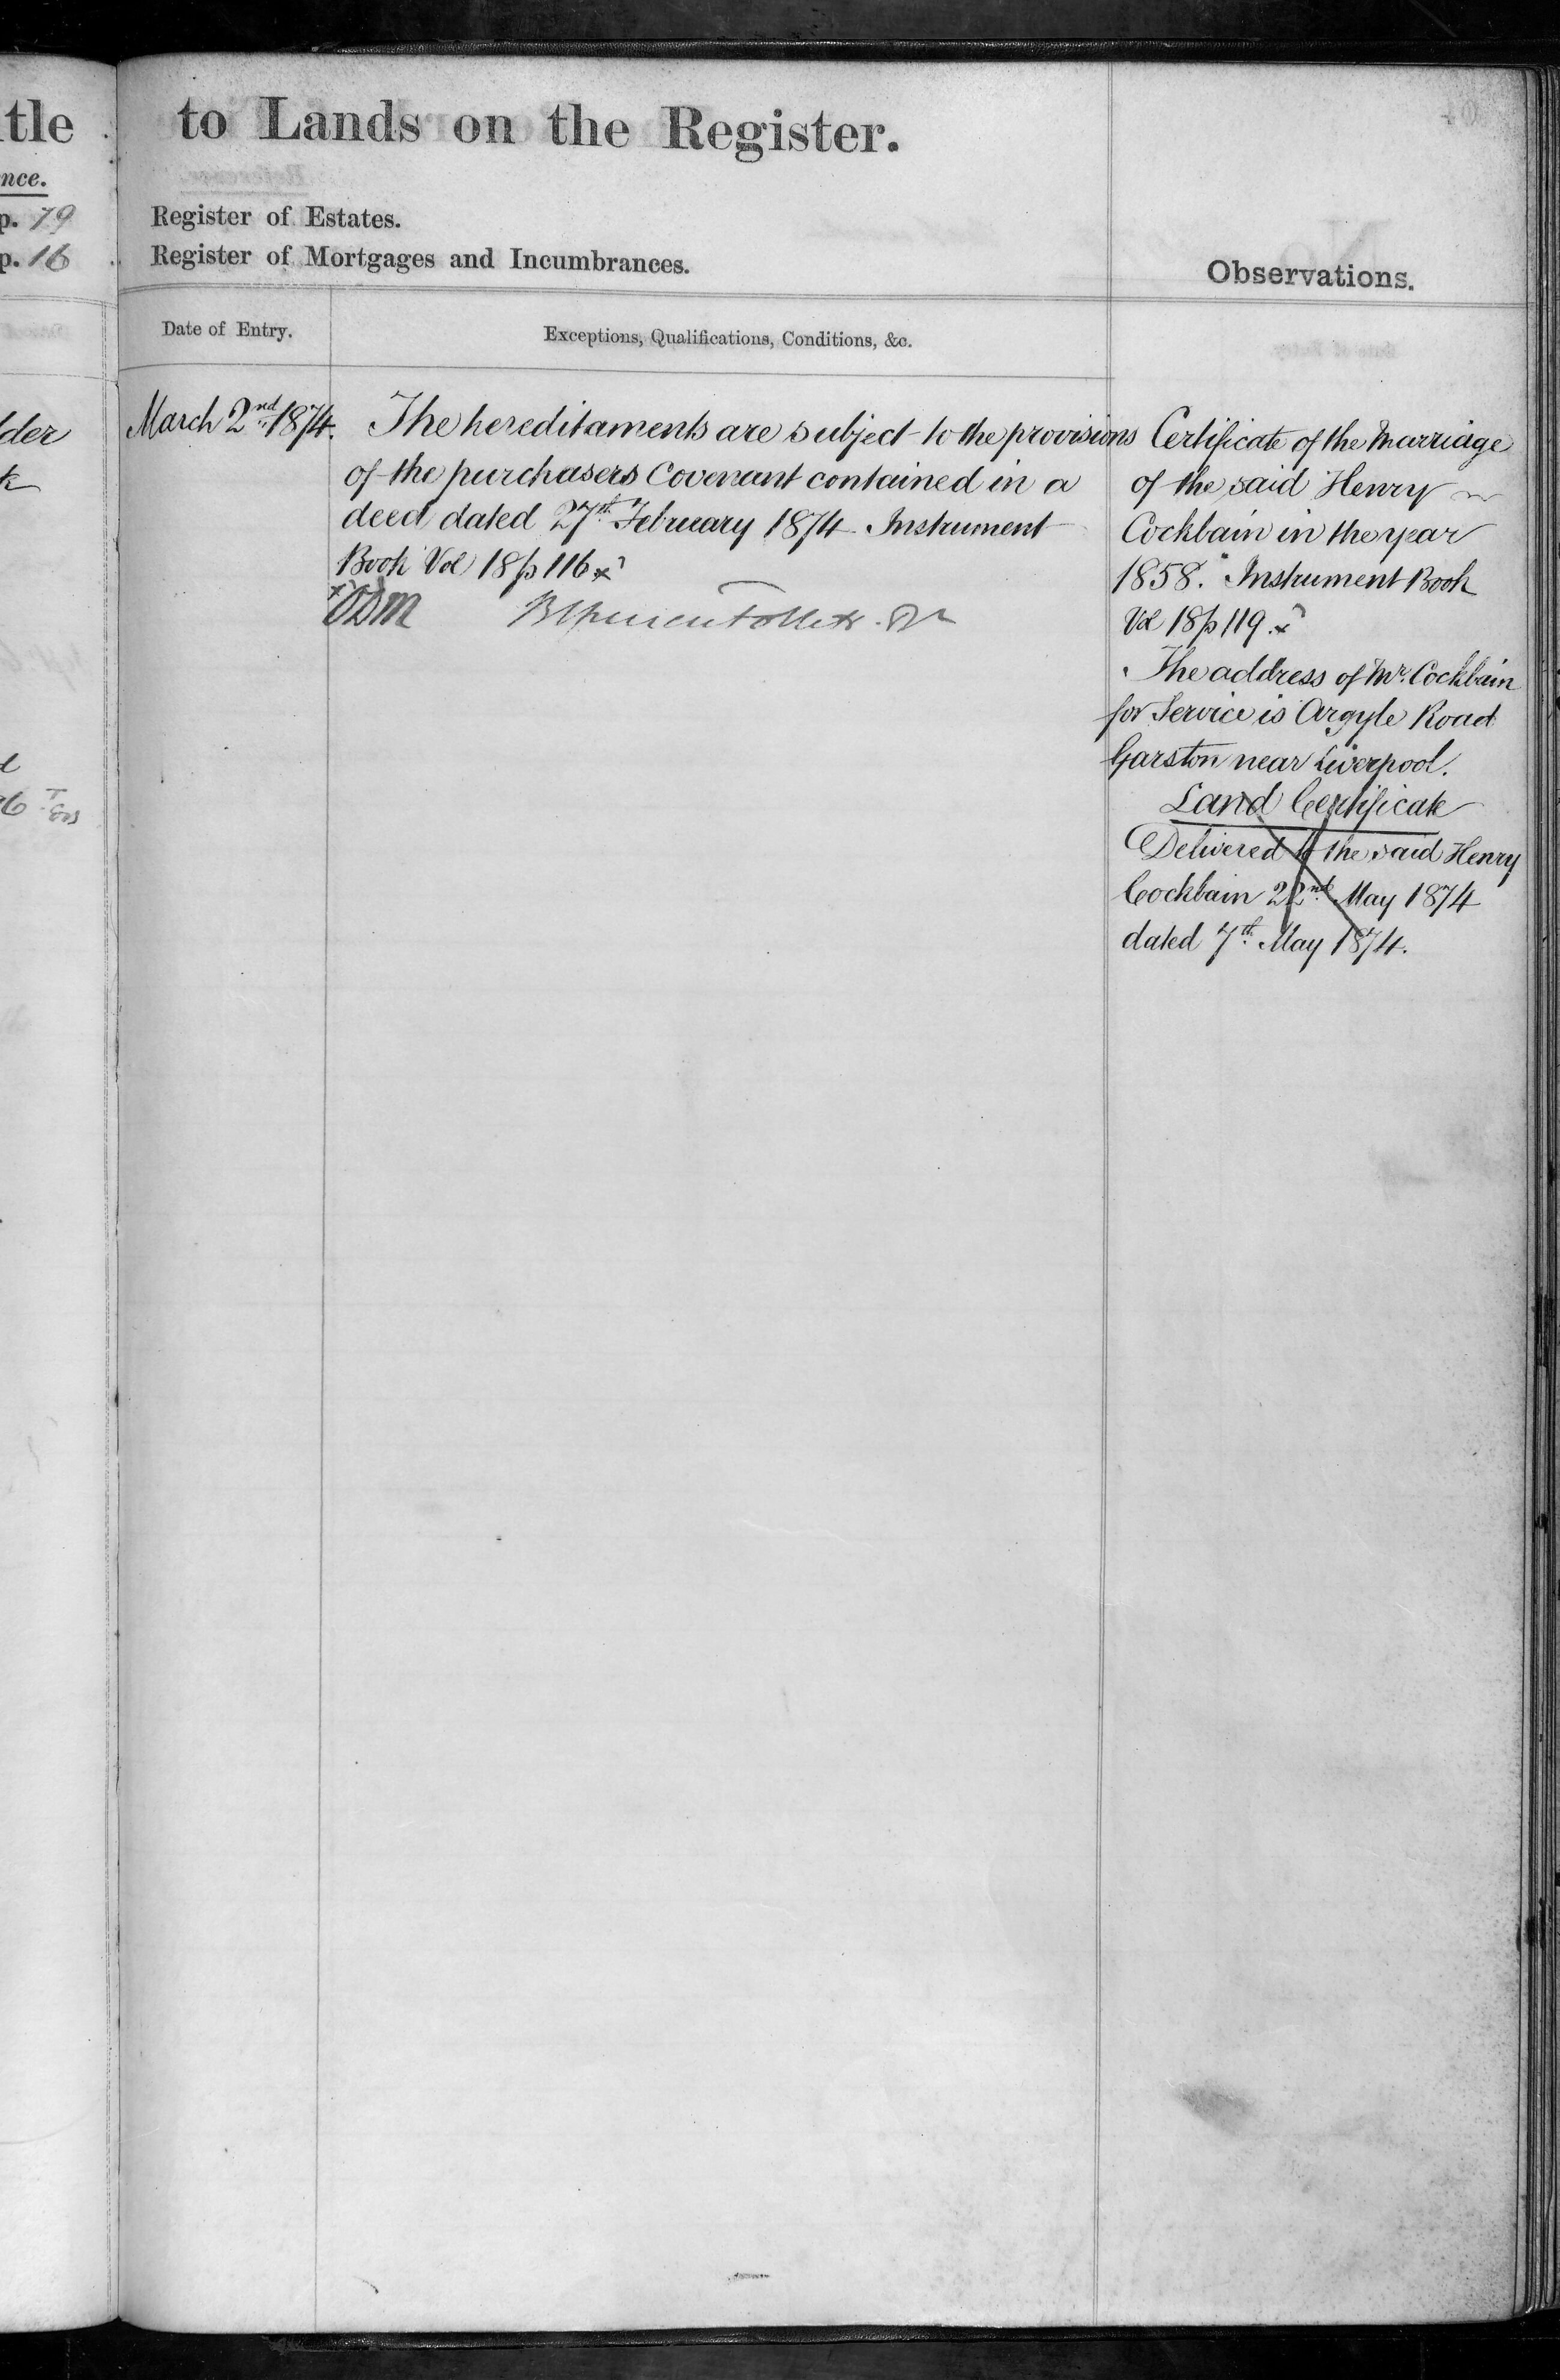 tle
nce.
p. 79
p. 16
der
to Lands on the Register.
Register of Estates.
Register of Mortgages and Incumbrances.
Date of Entry.
Exceptions, Qualifications, Conditions, &c.
March 2nd 1874.
The hereditaments are subject to the provisions
of the purchasers Covenant contained in a
deed dated 27th February 1874. Instrument
Book Vol 18 p 116 x
Observations.
Certificate of the Marriage
of the said Henry
Cockbain in the year
1858. Instrument Book
Vol 18 p 119. x
The address of Mr. Cockbain
for Service is Argyle Road
Garston near Liverpool.
Land Certificate
Delivered to the said Henry
Cockbain 22nd May 1874
dated 7th May 1874.